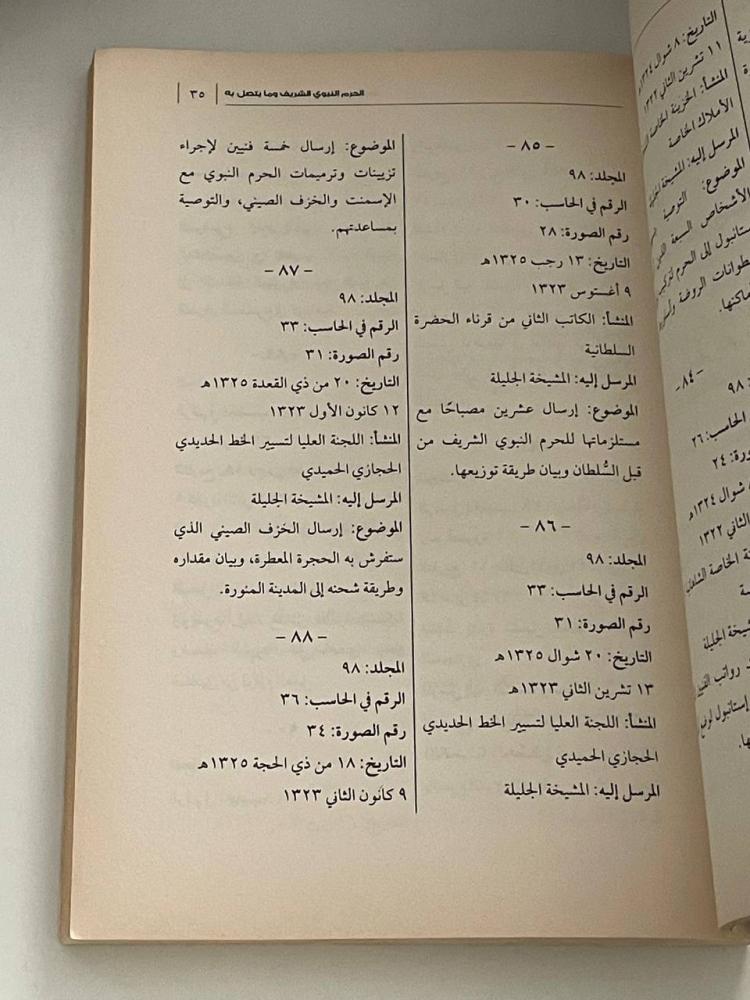 الحرم النبوي الشريف وما يتصل به
٣٥
- ٨٥ -
المجلد: ٩٨
الرقم في الحاسب: ٣٠
رقم الصورة: ٢٨
التاريخ: ١٣ رجب ١٣٢٥هـ
٩ أغستوس ١٣٢٣
المنشأ: الكاتب الثاني من قرناء الحضرة
السلطانية
المرسل إليه: المشيخة الجليلة
الموضوع: إرسال عشرين مصباحًا مع
مستلزماتها للحرم النبوي الشريف من
قبل السُّلطان وبيان طريقة توزيعها.
- ٨٦ -
المجلد: ٩٨
الرقم في الحاسب: ٣٣
رقم الصورة: ٣١
التاريخ: ٢٠ شوال ١٣٢٥هـ
١٣ تشرين الثاني ١٣٢٣
المنشأ: اللجنة العليا لتسيير الخط الحديدي
الحجازي الحميدي
المرسل إليه: المشيخة الجليلة
الموضوع: إرسال خمسة فنيين لإجراء
تزيينات وترميمات الحرم النبوي مع
الإسمنت والخزف الصيني، والتوصية
بمساعدتهم.
- ٨٧ -
المجلد: ٩٨
الرقم في الحاسب: ٣٣
رقم الصورة: ٣١
التاريخ: ٢٠ من ذي القعدة ١٣٢٥هـ
١٢ كانون الأول ١٣٢٣
المنشأ: اللجنة العليا لتسيير الخط الحديدي
الحجازي الحميدي
المرسل إليه: المشيخة الجليلة
الموضوع: إرسال الخزف الصيني الذي
ستفرش به الحجرة المعطرة، وبيان مقداره
وطريقة شحنه إلى المدينة المنورة.
- ٨٨ -
المجلد: ٩٨
الرقم في الحاسب: ٣٦
رقم الصورة: ٣٤
التاريخ: ١٨ من ذي الحجة ١٣٢٥هـ
٩ كانون الثاني ١٣٢٣
التاريخ: ٨ شوال ١٣٢٤هـ
١١ تشرين الثاني ١٣٢٢
المنشأ: الخزينة الخاصة
الأملاك الخاصة
المرسل إليه: المشيخة
الموضوع: التوصية
الأشخاص السبعة
ستانبول إلى الحرم لتركيب
- ٨٤ -
٩٨
الحاسب: ٢٦
ورة: ٢٤
شوال ١٣٢٤هـ
الثاني ١٣٢٢
الخاصة
الجليلة
رواتب
إستانبول